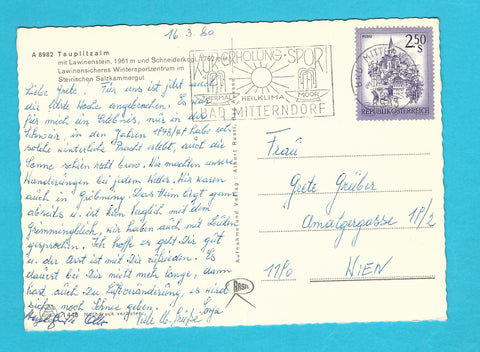 16.3.80
A 8982 Tauplitzalm
mit Lawinenstein, 1961 m und Schneiderkogl, 1762 m
Lawinensicheres Wintersportzentrum im
Steirischen Salzkammergut
Liebe Grete! Für uns ist jetzt auch
die letzte Woche angebrochen. Es war
für mich ein Erlebnis, nur in der
Schweiz, in den Jahren 1948/49 habe ich
solche winterliche Pracht erlebt, auch die
Sonne schien recht brav. Wir machten unsere
Wanderungen bei jedem Wetter. Wir waren
auch in Pürgg. Das Heim liegt ganz
abseits u. ist kein Vergleich mit dem
Grimmingblick, wir haben auch mit Leuten
gesprochen. Ich hoffe es geht Dir gut
u. der Arzt ist mit Dir zufrieden. Es
dauert bei Dir nicht mehr lange, dann
hast auch Du Luftveränderung, es wird
sicher noch Schnee geben.
Viele lb. Grüße
KUR ERHOLUNG SPORT
HEILKLIMA
MOOR
BAD MITTERNDORF
BAD MITTERNDORF
2.50
S
REPUBLIK ÖSTERREICH
Aufnahme und Verlag:
Frau
Grete Grüber
Amalgergasse 1P/2
1190
WIEN
RASTL